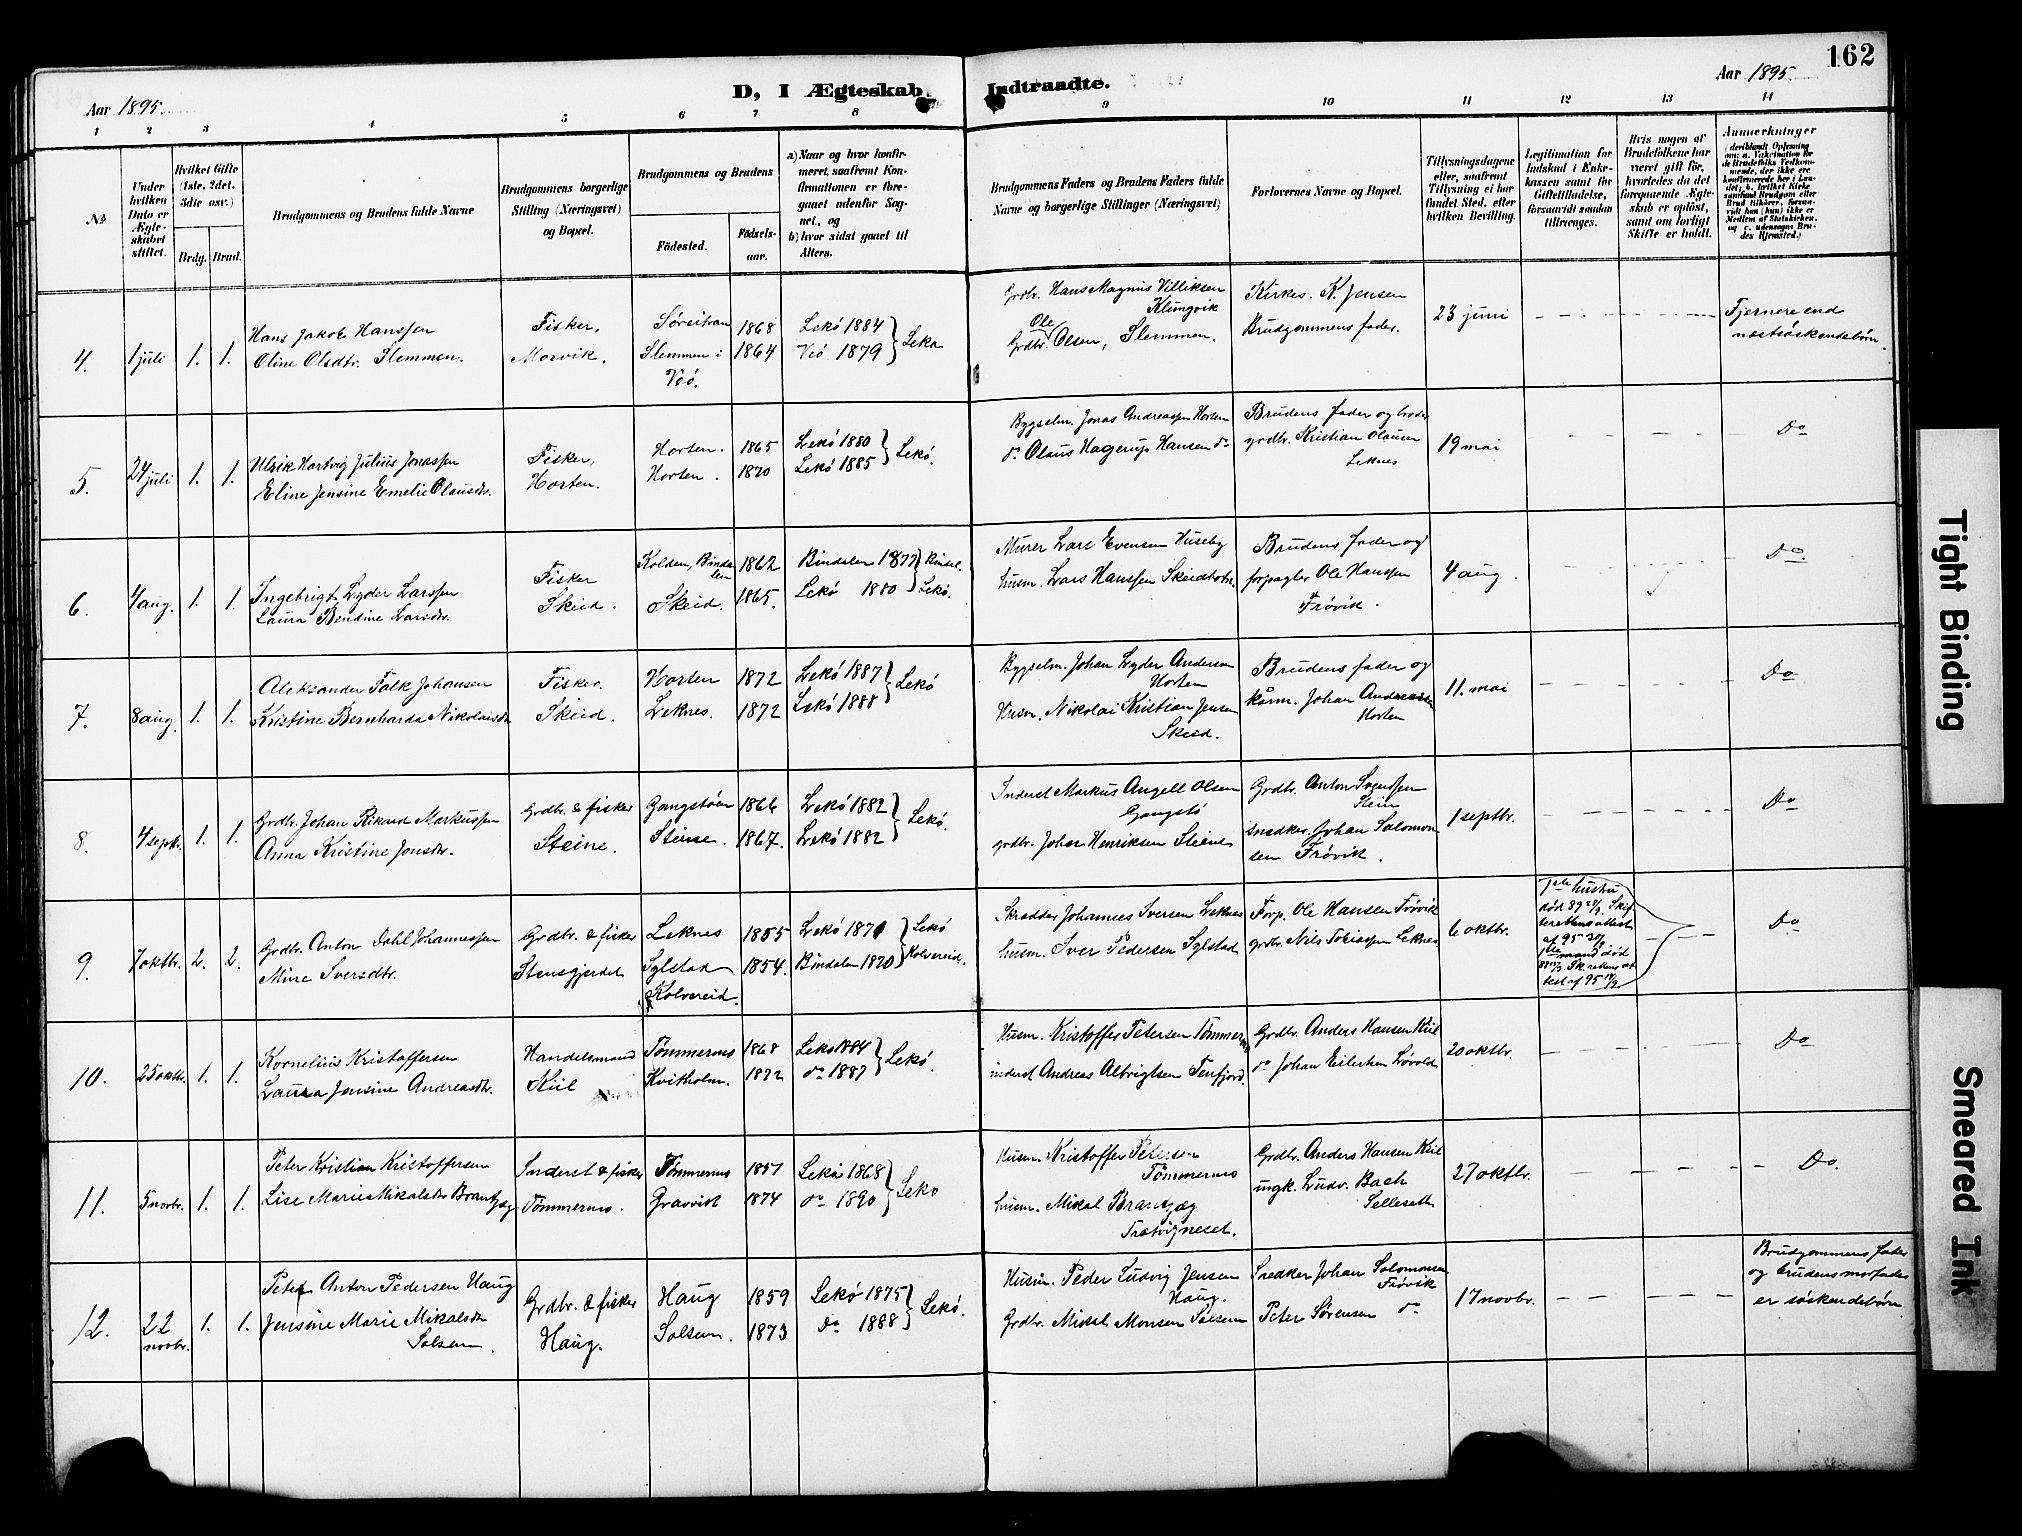 162
Aar 1895.
D, I Ægteskab Indtraadte.
Aar 1895.
1 2 3 4 5 6 7 8 9 10 11 12 13 14
No
Under hvilken Dato er Ægteskabet stiftet.
Hvilket Gifte (1ste, 2det, 3die osv.)
Brdg. Brud.
Brudgommens og Brudens fulde Navne
Brudgommens borgerlige Stilling (Næringsvei) og Bopæl.
Brudgommens og Brudens
Fødested.
Fødselsaar.
a) Naar og hvor konfirmeret, saafremt Konfirmationen er foregaaet udenfor Sognet, og
b) hvor sidst gaaet til Alters.
Brudgommens Faders og Brudens Faders fulde Navne og borgerlige Stillinger (Næringsvei)
Forlovernes Navne og Bopæl.
Tillysningsdagene eller, saafremt Tillysning ei har fundet Sted, efter hvilken Bevilling.
Legitimation for Indskud i Enkekassen samt for Giftetilladelse, forsaavidt saadan tiltrænges.
Hvis nogen af Brudefolkene har været gift før, hvorledes da det foregaaende Ægteskab er opløst, samt om lovligt Skifte er holdt.
Anmerkninger
(deriblandt Oplysning om: a. Vakcination for de Brudefolks Vedkommende, der ikke ere konfirmerede her i Landet; b. hvilket Kirkesamfund Brudgom eller Brud tilhører, forsaavidt han (hun) ikke er Medlem af Statskirken, og c. udensogns Brudes Hjemsted.)
4. 1 juli 1. 1.
Hans Jakob Hanssen
Oline Olsdtr. Slemmen.
Fisker,
Morvik.
Slemmen i
Veö.
1868
1864
Lekö 1884
Veö 1879
Leka
Grdbr. Hans Magnus Villiksen
Klungvik
Ole
Grdbr. Olsen, Slemmen.
Kirkes. K. Jensen
Brudgommens fader.
23 juni
Fjernere end
næstsöskendebörn.
5. 24 juli 1. 1.
Ulrik Hartvig Julius Jonassen
Eline Jensine Emelie Olausdtr.
Fisker,
Horten.
Horten.
Horten.
1865
1870
Lekö 1880
Lekö 1885
Lekö.
Bygselm. Jonas Andreassen Horten
do Olaus Hagerup Hansen do
Brudens fader og broder
grdbr. Kristian Olausen
Leknes
19 mai
Do
6. 4 aug. 1. 1.
Ingebrigt Lyder Larssen
Laura Bendine Larsdtr.
Fisker
Skeid.
Kolden, Bindalen
Skeid.
1862
1865.
Bindalen 1877
Lekö 1880
Bindal.
Lekö.
Murer Lars Evensen Huseby
husm. Lars Hanssen
Brudens fader og
forpagter Ole Hanssen
Frövik.
4 aug.
Do
7. 8 aug. 1. 1.
Aleksander Falk Johansen
Kristine Bernharda Nikolaisdtr
Fisker.
Skeid.
Horten
Leknes.
1872
1872
Lekö 1887
Lekö 1888
Lekö
Bygselm. Johan Lyder Andersen
Horten
Husm. Nikolai Kristian Jensen
Skeid.
Brudens fader og
kårm. Johan Andreassen
Horten
11. mai
Do
8. 4 septr. 1. 1.
Grdbr. Johan Rikard Markussen
Anna Kristine Jonsdtr.
Grdbr. & fisker
Steine.
Gangstöen
Steine.
1866
1867.
Lekö 1882
Lekö 1882
Lekö.
Inderst Markus Angell Olsen
Gangstö
grdbr. Johan Henriksen Steine
Grdbr. Anton Svendsen
Stein
snedker. Johan Salomon
sen Frövik.
1 septbr.
Do
9. 7 oktbr. 2. 2.
Grdbr. Anton Dahl Johannessen
Mine Iversdtr.
Grdbr. & fisker
Stensgjerdet
Leknes
Sylstad
Kolvereid.
1855
1854.
Lekö 1870
Bindalen 1870
Lekö
Kolvereid.
Skrædder Johannes Iversen Leknes
husm. Iver Pedersen Sylstad
Forp. Ole Hansen Frövik
grdbr. Nils Tobiassen Leknes
6 oktbr.
1ste hustru
död
mand död
Do
10. 25 oktbr. 1. 1.
Kornelius Kristoffersen
Laura Jensine Andreasdtr.
Handelsmand
Kiil
Tömmernes
Kvitholm.
1868
1872
Lekö 1884
do 1887
Lekö.
Husm. Kristoffer Petersen Tömmernes
inderst Andreas Albrigtsen Terfjord.
Grdbr. Anders Hansen Kiil
do Johan Eilertsen
20 oktbr.
Do
11. 5 novbr. 1. 1.
Peter Kristian Kristoffersen
Lise Marie Mikalsdtr Brantzæg
Inderst & fisker
Tömmernes.
Tömmernes
Gravvik
1851
1874
Lekö 1868
do 1890
Lekö
Husm. Kristoffer Petersen
Tömmernes
husm. Mikal Brantzæg
Grdbr. Anders Hansen Kiil
ungk. Ludv. Bach
Selleseth
27 oktbr.
Do.
12. 22 novbr. 1. 1.
Peter Anton Pedersen Haug
Jensine Marie Mikalsdtr
Solsem.
Grdbr. & fisker
Haug.
Haug
Solsem.
1859
1873
Lekö 1875
Do 1888
Lekö.
Husm. Peder Ludvig Jensen
Haug.
Grdbr. Mikal Monsen Solsem
Snedker Johan Salomonsen
Frövik
Peter Sörensen do
17 novbr.
Brudgommens fader
og brudens morfader
er söskendebörn
Tight Binding
Smeared Ink